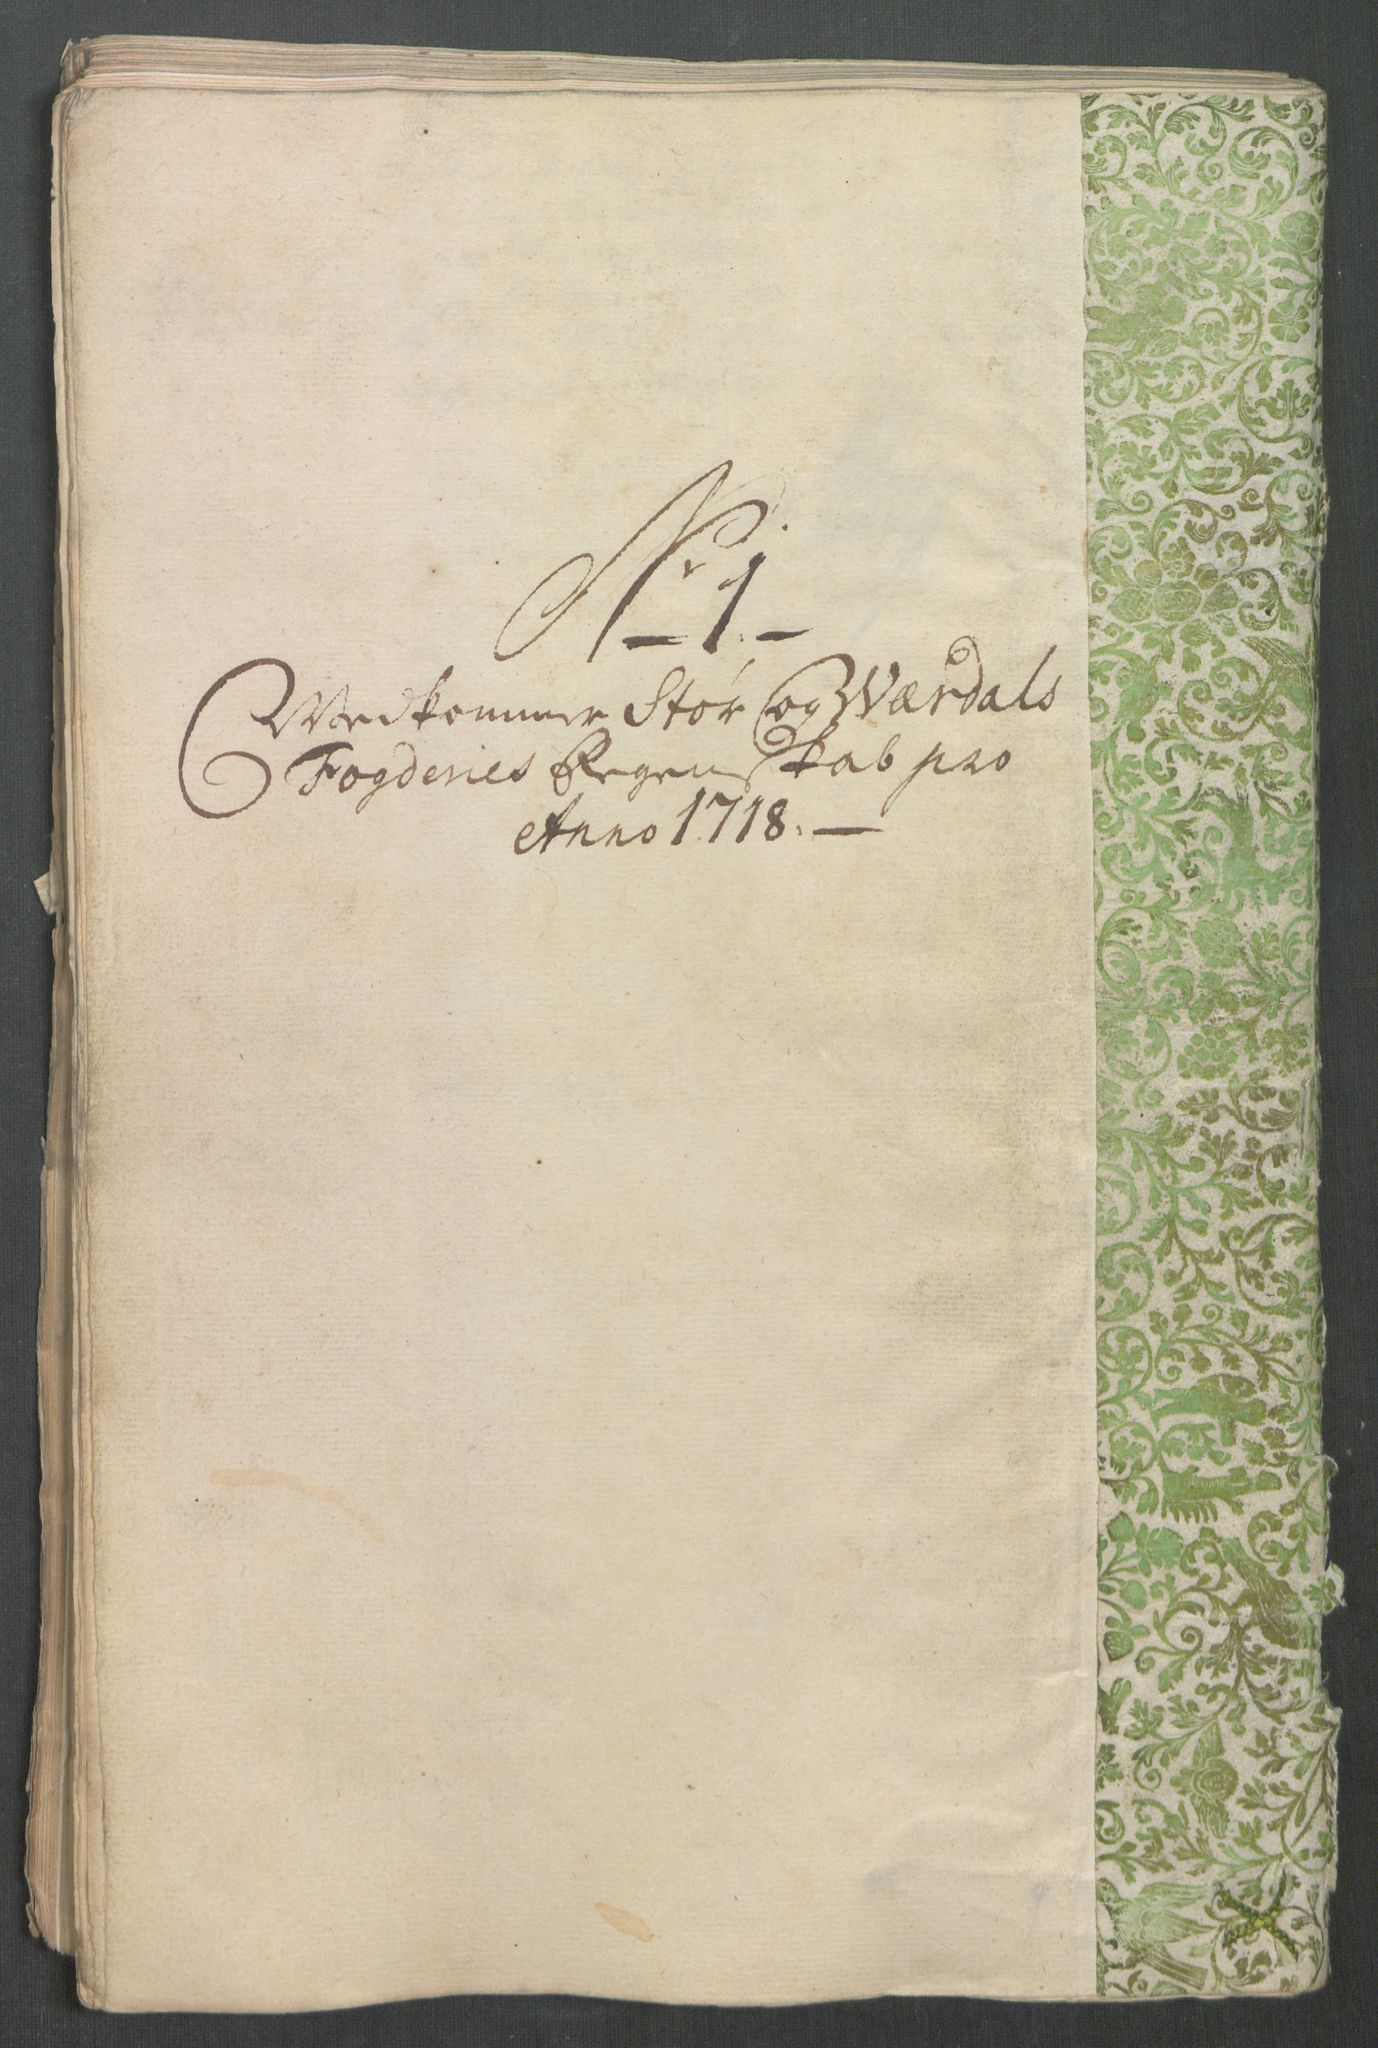 Nr 1.
Vedkommer Stør og Værdals
Fogderies Regenskab pro
Anno 1718.